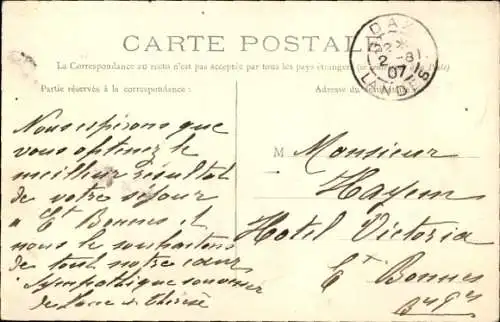 CARTE POSTALE
La Correspondance au recto n'est pas acceptée par tous les pays étrangers
Partie réservée à la correspondance :
Adresse du Destinataire
DAX
2 - 8
07
LANDES
Nous espérons que
vous optenez le
meilleur résultat
de votre séjour
à Et Bonnes et
nous le souhaitons
de tout notre cœur
Sympathique souvenir
de et Thérèse
M Monsieur
Hayem
Hotel Victoria
Et Bonnes